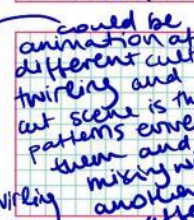 could be
animation of
different cult
twirling and
cut scene is th
patterns conve
them and
mixing w
wirling another